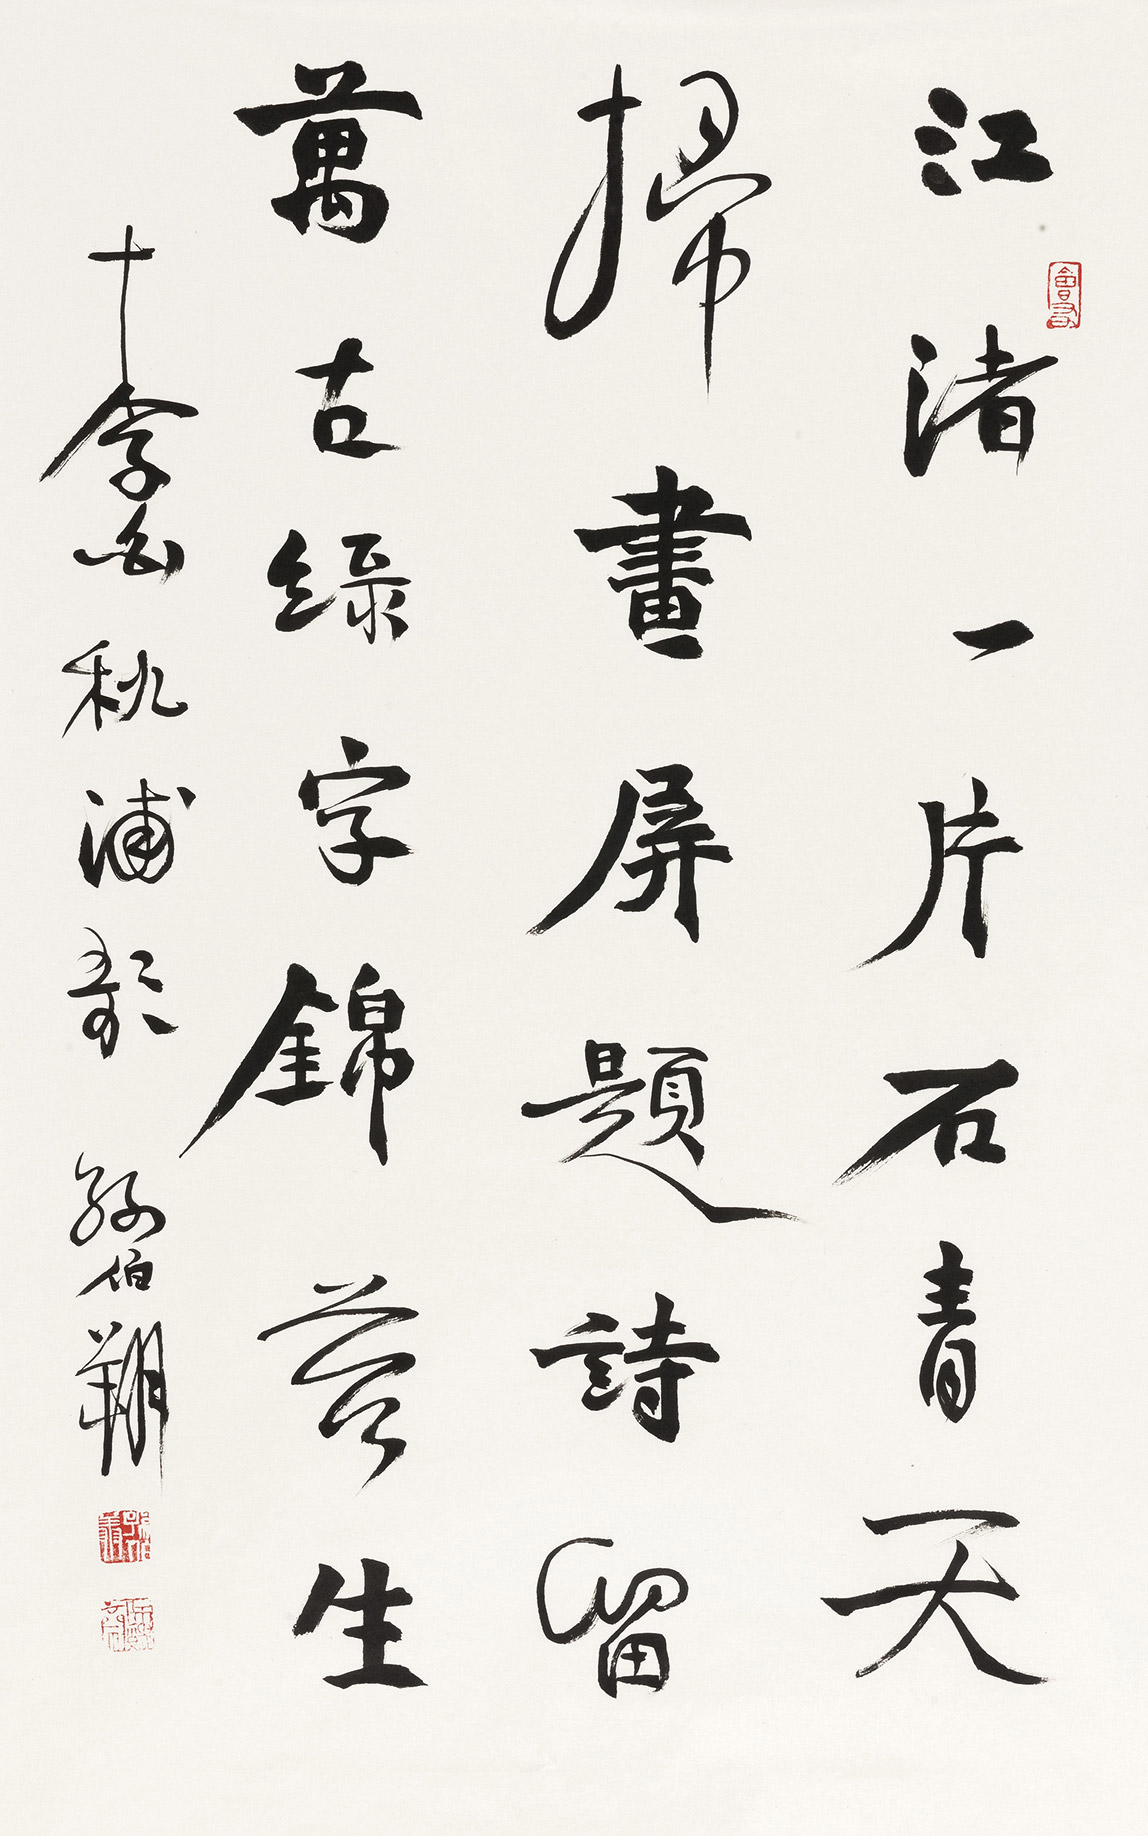 江渚一片石青天
掃畫屏題詩留
萬古綠字錦苔生
李白秋浦歌 孫伯翔